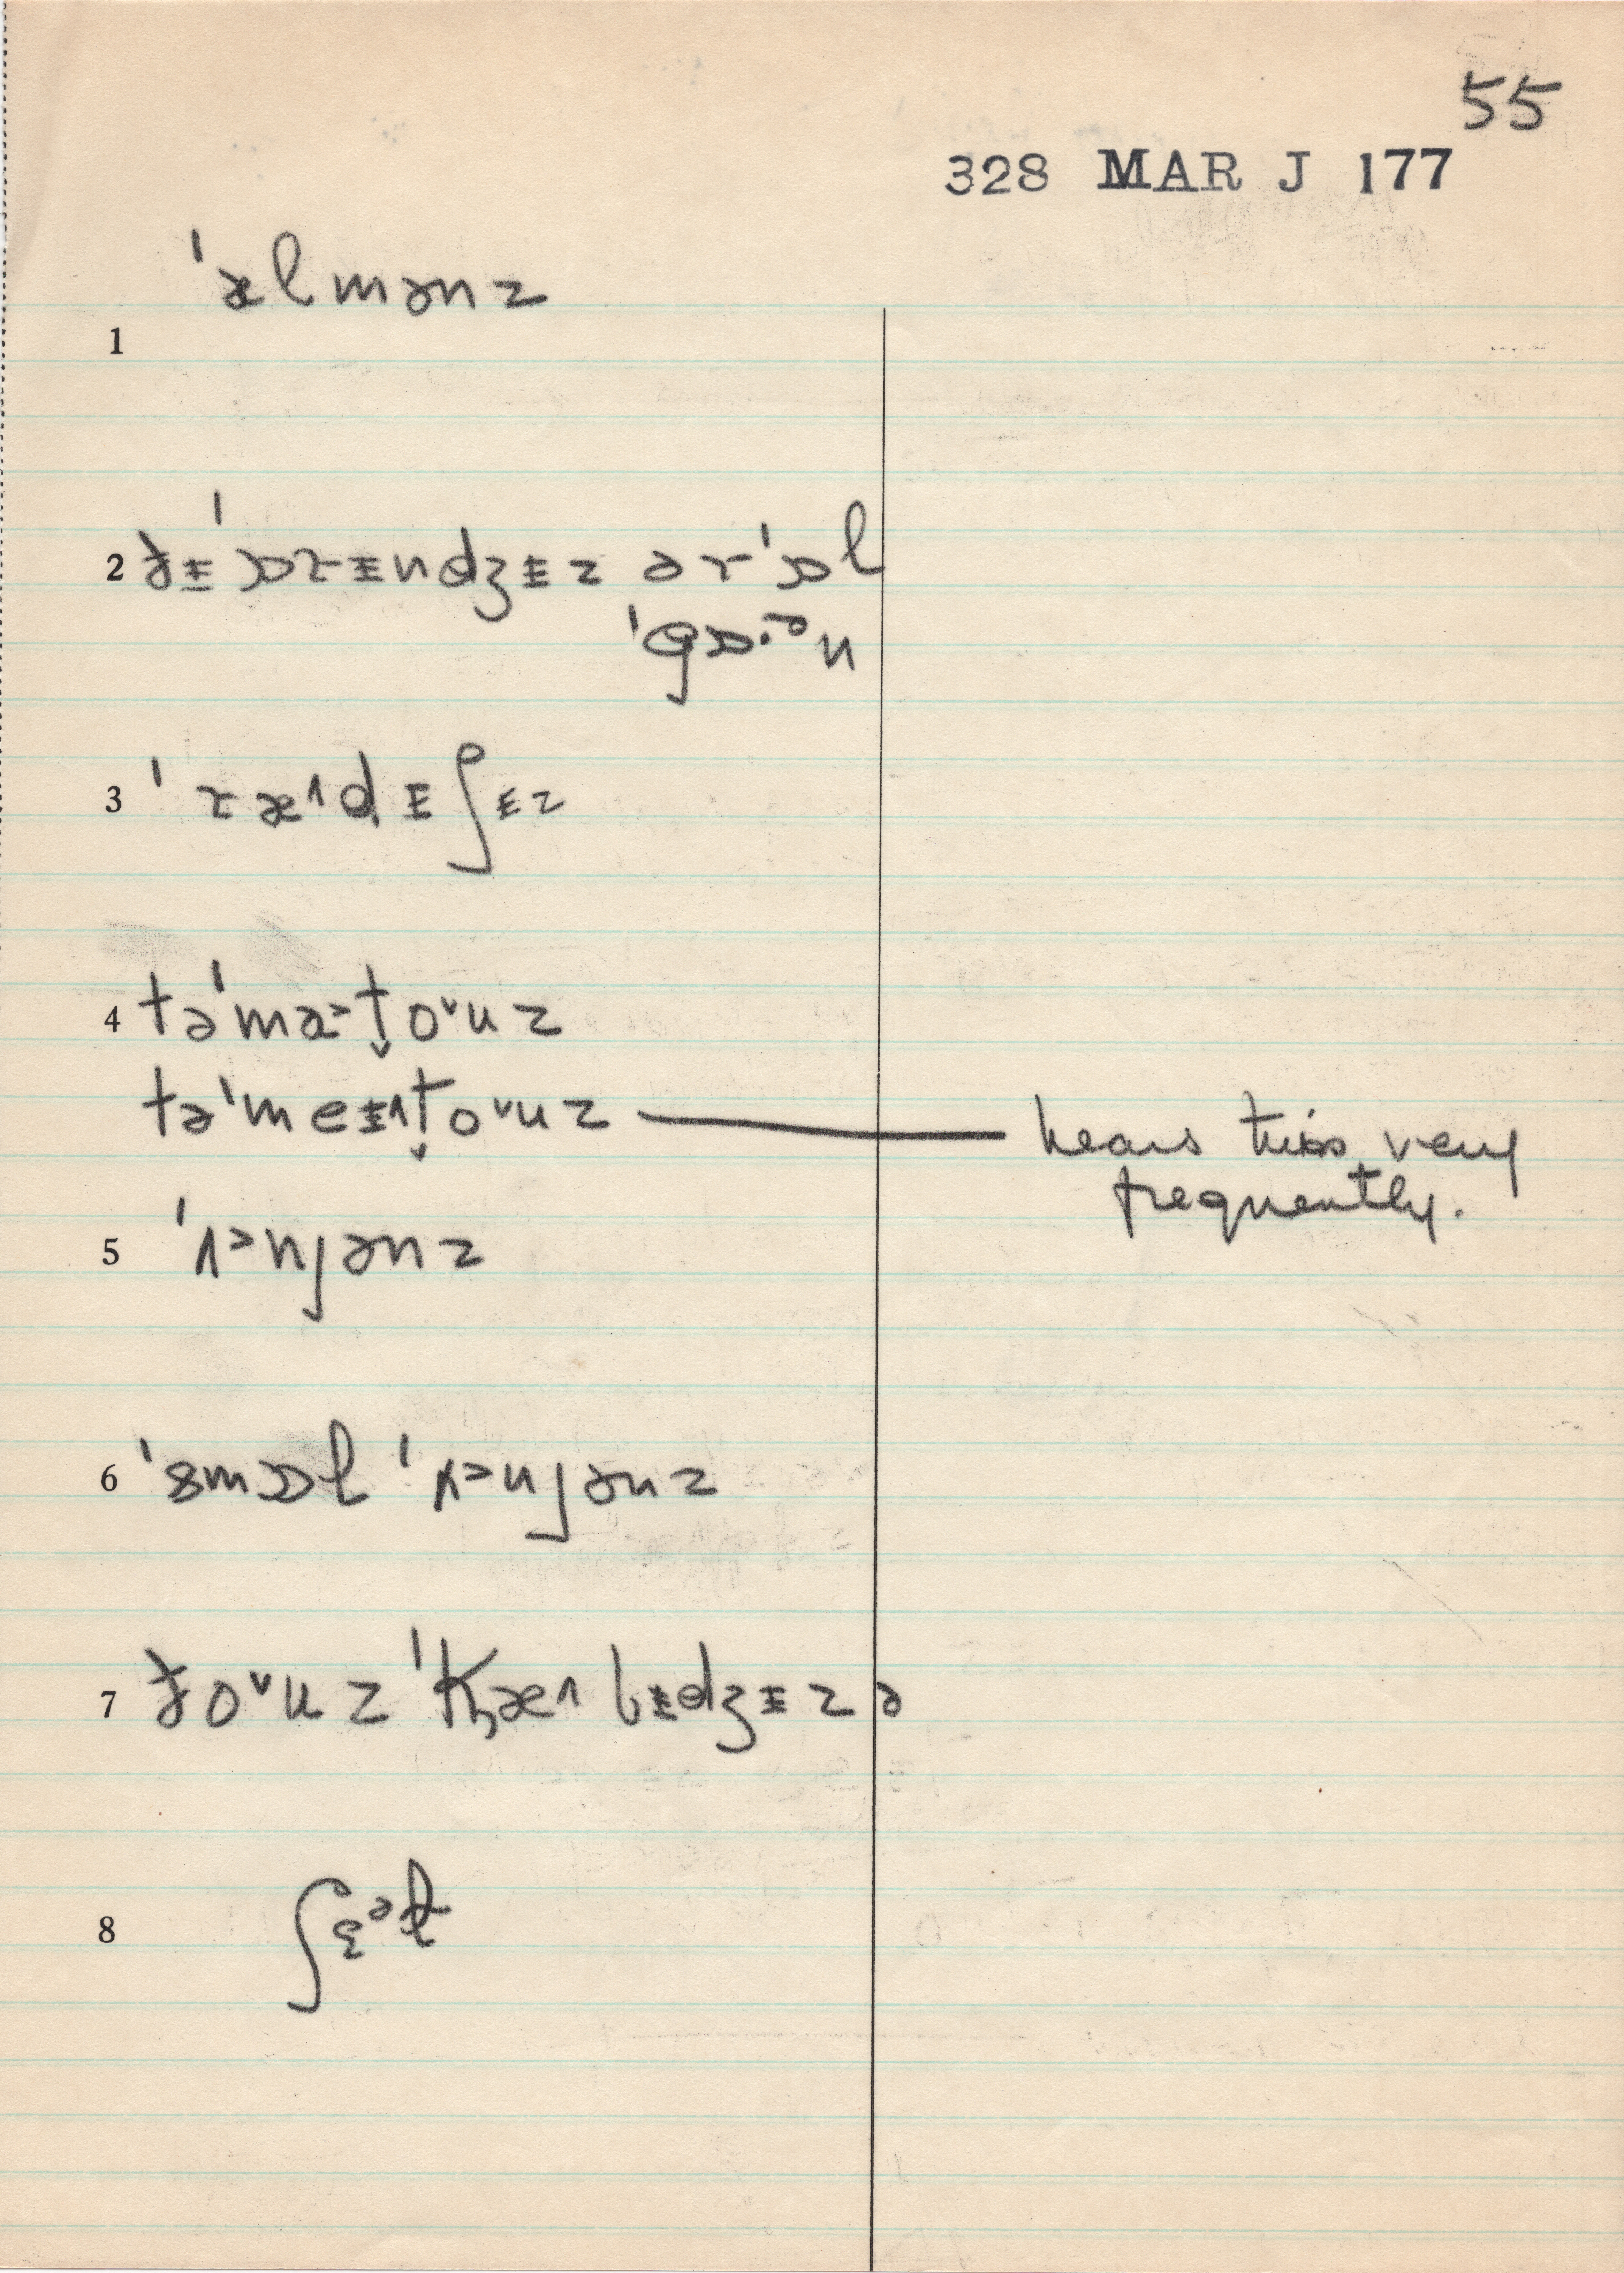 55
328 MAR J 177
1 ˈælmənz
2 ðɨˈɒrɨndʒɨz ərˈɒl
ˈgɒ·ᵊn
3 ˈræ˄dɨʃɨz
4 təˈma˃t̬o˅uz
təˈmeɨ˄t̬o˅uz — hears this very
frequently.
5 ˈʌ˃njənz
6 ˈsmɒl ˈʌ˃njənz
7 ðo˅uz ˈkæ˄bɨdʒɨz ə
8 ʃɛᵊɫ